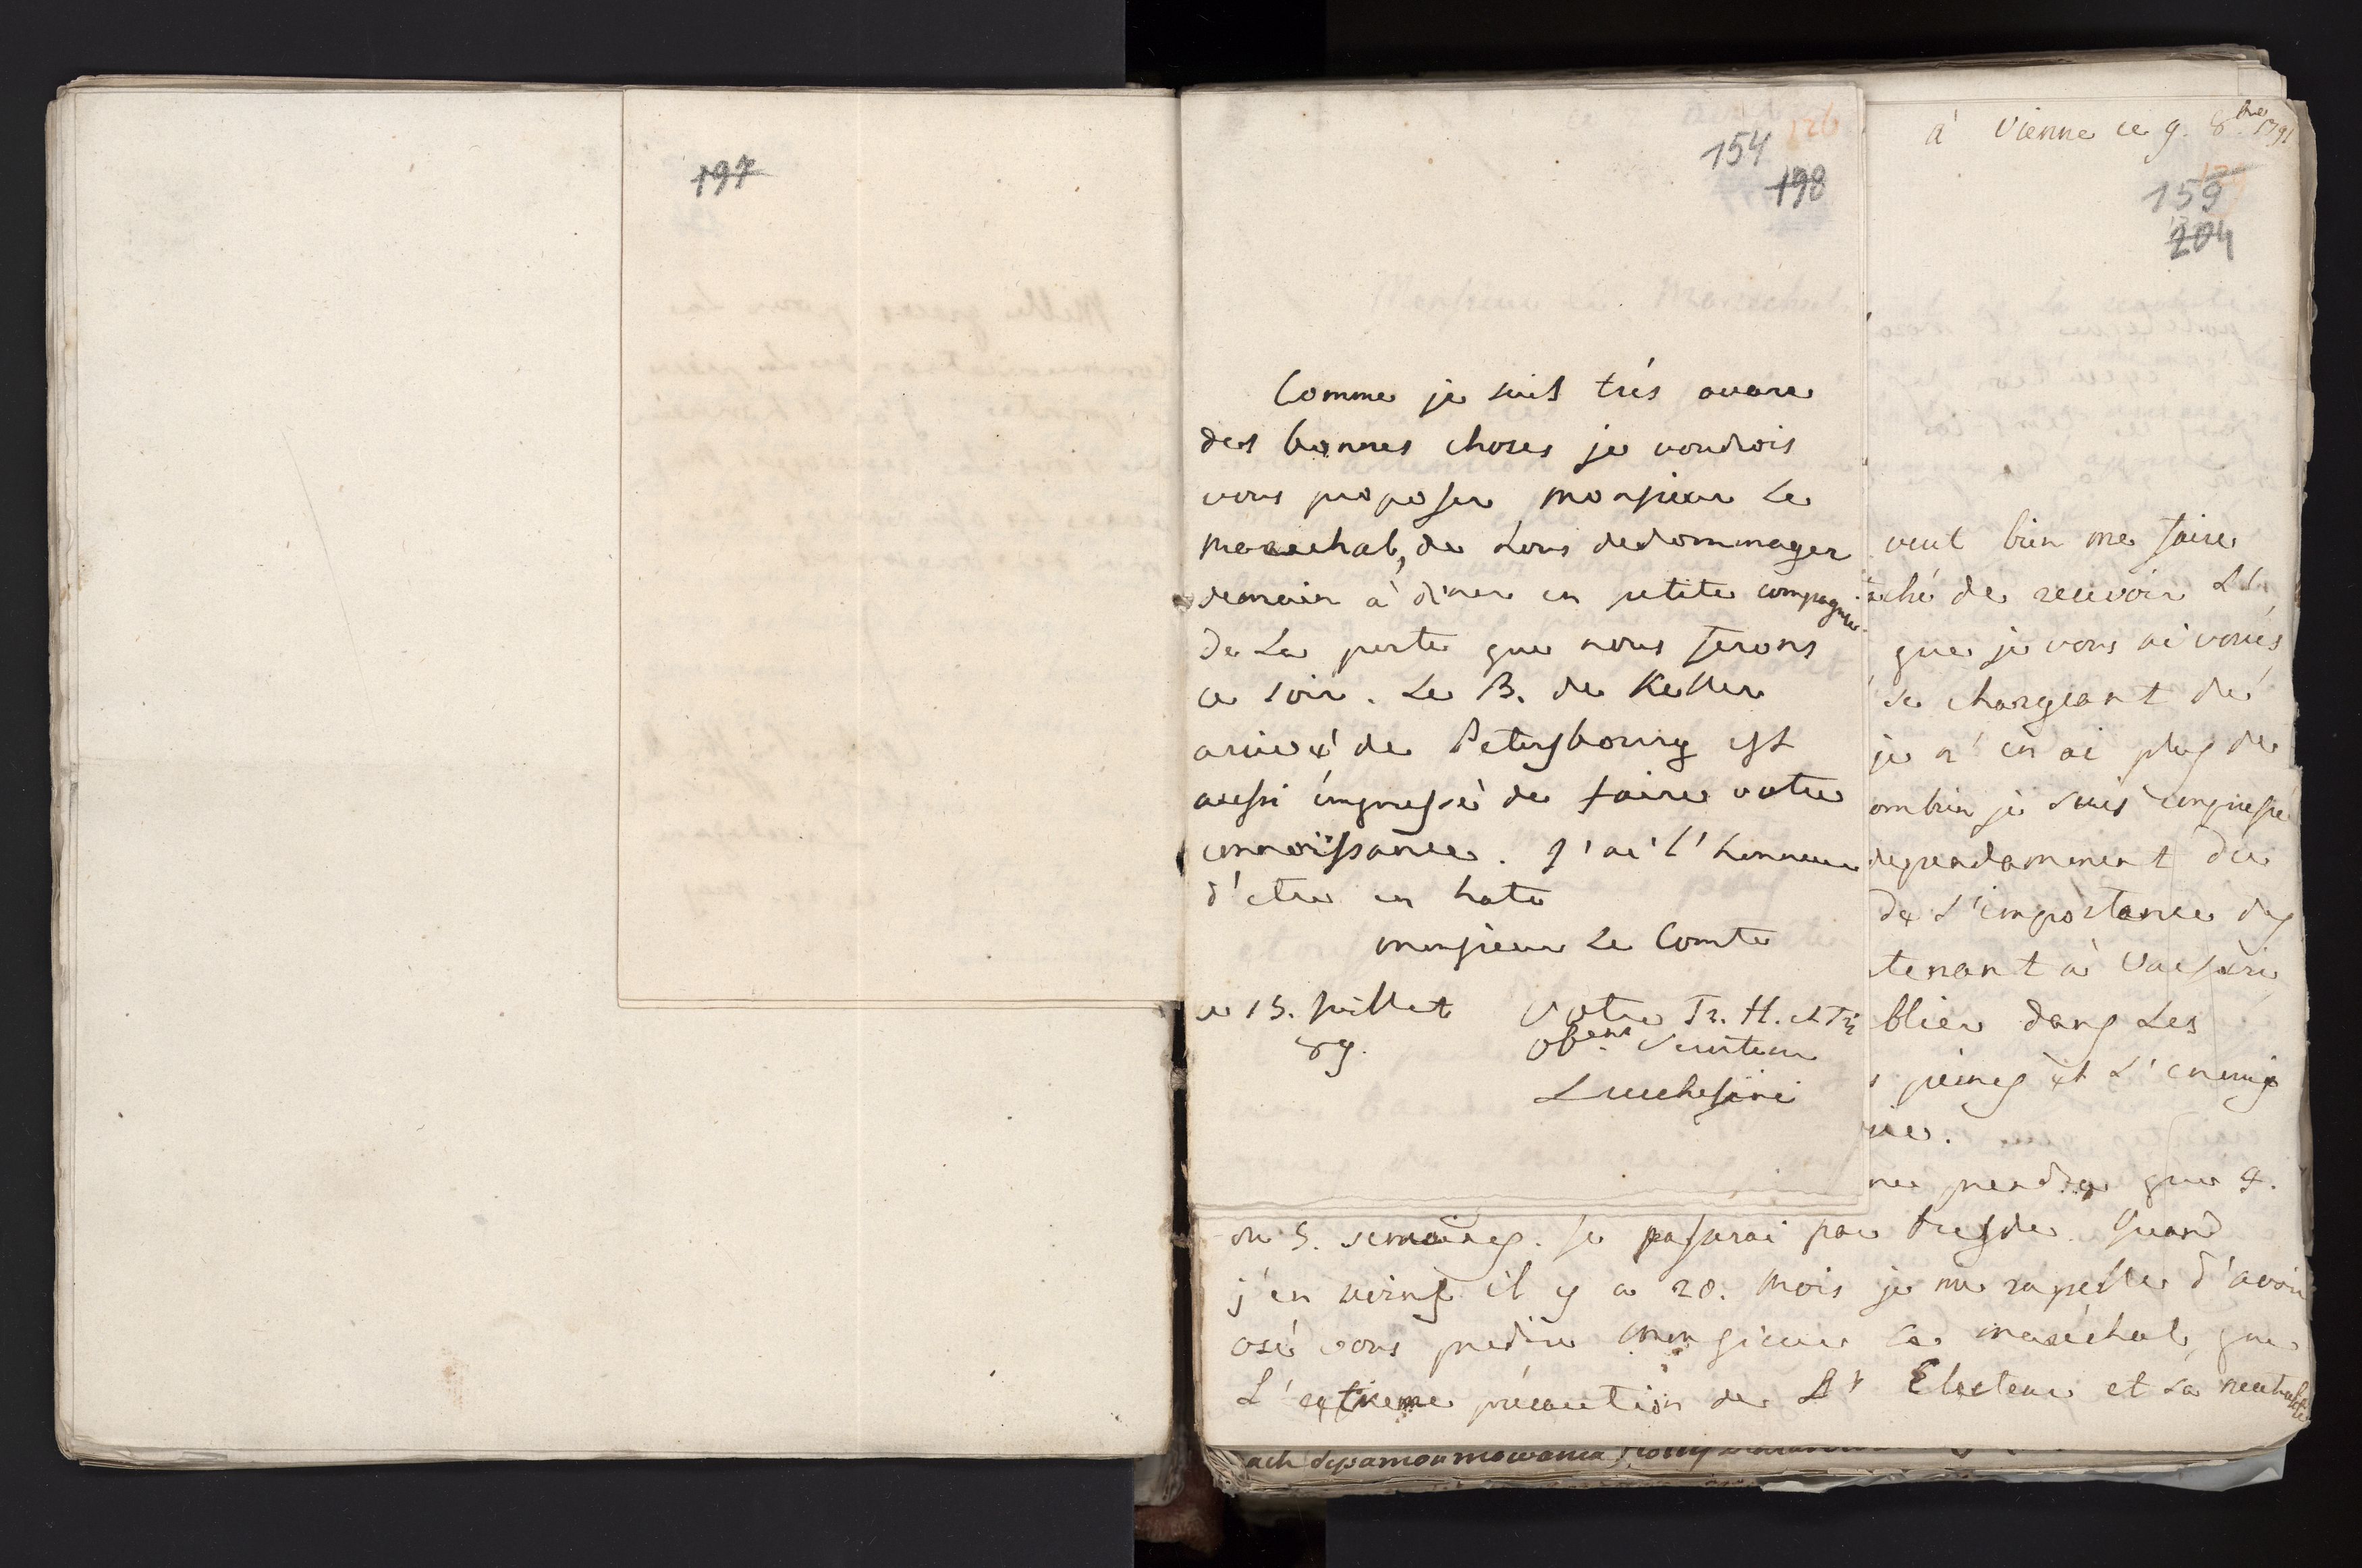 197
154 126
198
Comme je suis trés avare
des bonnes choses je voudrois
vous proposer Monsieur Le
Marechal, de Nous dedommager
demain à diner en petite compagnie
de La perte que nous ferons
ce soir. Le B. de Keller
arrivé de Petersbourg est
aussi émpressé de faire votre
connoissance. J'ai l'honneur
d'etre en hate
monsieur Le Comte
ce 15. Juillet
89.
Votre Tr. H. et Tr
obent Serviteur
Lucchesini
à Vienne ce 9. 8bre 1791
159
204
veut bien me faire
aché de recevoir Les
que je vous ai voués
se chargeant de
je n'en ai plus de
ombien je suis empressé
dependamment de
de L'importance des
tenant à Varsovie
blier dans Les
s peines et L'ennui
vie.
me prendra que 4.
ou 5. semaines. Je passerai par Dresde. Quand
j'en vins il y a 20. mois je me rapelle d'avoir
osé vous predire Monsieur Le maréchal, que
L'extreme précaution de Lr Electeur et sa neutralité